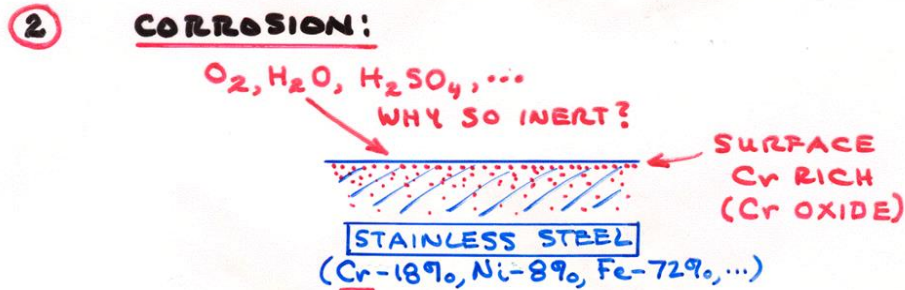 2 CORROSION:
O₂, H₂O, H₂SO₄, ...
WHY SO INERT?
SURFACE
Cr RICH
(Cr OXIDE)
STAINLESS STEEL
(Cr-18%, Ni-8%, Fe-72%, ...)